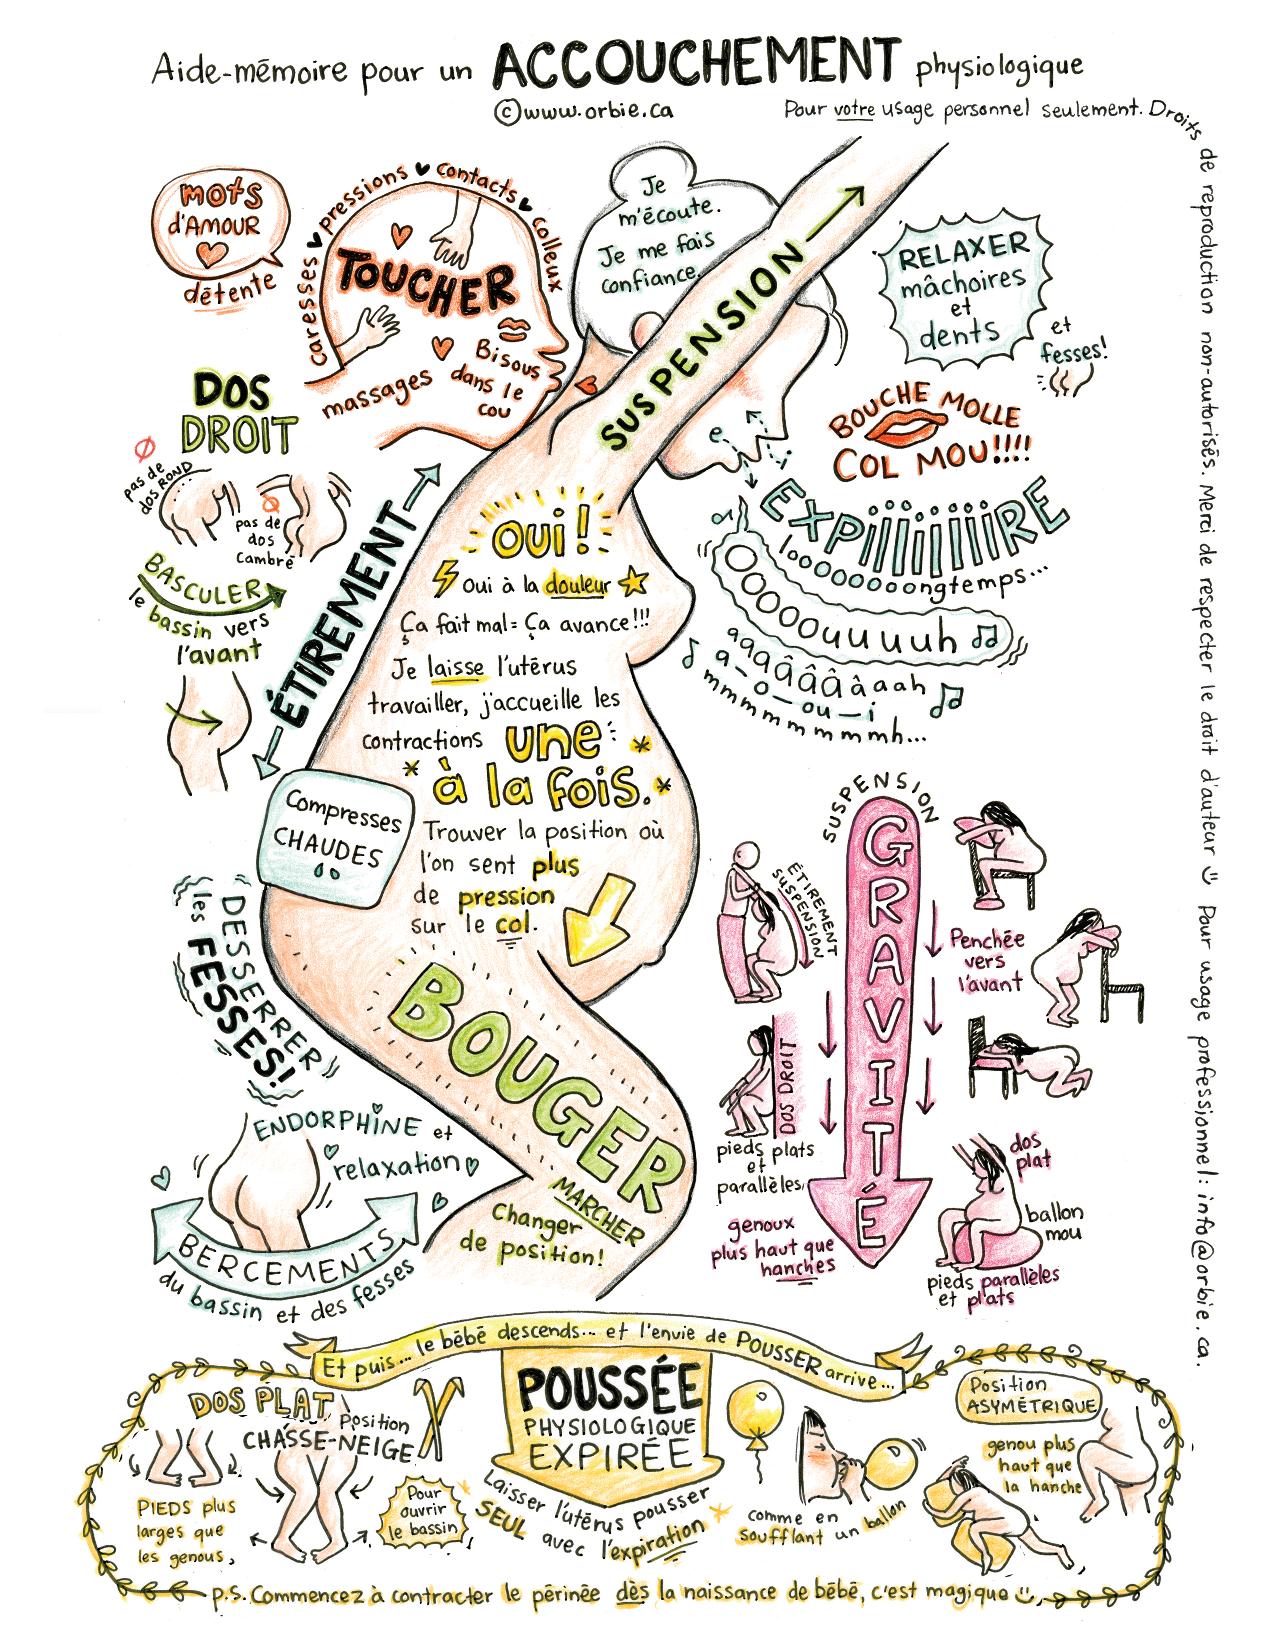 Aide-mémoire pour un ACCOUCHEMENT physiologique
©www.orbie.ca
Pour votre usage personnel seulement. Droits de reproduction non-autorisés. Merci de respecter le droit d'auteur Pour usage professionnel: info@orbie.ca.
mots
d'AMOUR
détente
caresses pressions contacts colleux
TOUCHER
Bisous
dans le
cou
massages
Je
m'écoute.
Je me fais
confiance.
SUSPENSION
RELAXER
mâchoires
et
dents
et
fesses!
BOUCHE MOLLE
COL MOU!!!!
DOS
DROIT
pas de
dos ROND
pas de
dos
cambré
BASCULER
le bassin vers
l'avant
ÉTIREMENT
OUI!
Oui à la douleur
Ça fait mal = Ça avance!!!
Je laisse l'utérus
travailler, j'accueille les
contractions une
à la fois.
Trouver la position où
l'on sent plus
de pression
sur le col.
e
i
EXPiiiiiiiiRE
looooooooongtemps...
OOOOOuuuuh
aaaâââââaah
a-o-ou-i
mmmmmmmmmh...
Compresses
CHAUDES
DESSERRER
les FESSES!
BOUGER
MARCHER
Changer
de position!
ENDORPHINE et
relaxation
BERCEMENTS
du bassin et des fesses
SUSPENSION
GRAVITÉ
ÉTIREMENT
SUSPENSION
Penchée
vers
l'avant
DOS DROIT
pieds plats
et
parallèles,
genoux
plus haut que
hanches
dos
plat
ballon
mou
pieds parallèles
et plats
Et puis... le bébé descends... et l'envie de POUSSER arrive...
DOS PLAT
Position
CHASSE-NEIGE
PIEDS plus
larges que
les genous,
Pour
ouvrir
le bassin
POUSSÉE
PHYSIOLOGIQUE
EXPIRÉE
Laisser l'utérus pousser
SEUL avec l'expiration
comme en
soufflant un ballon
Position
ASYMÉTRIQUE
genou plus
haut que
la hanche
p.s. Commencez à contracter le périnée dès la naissance de bébé, c'est magique